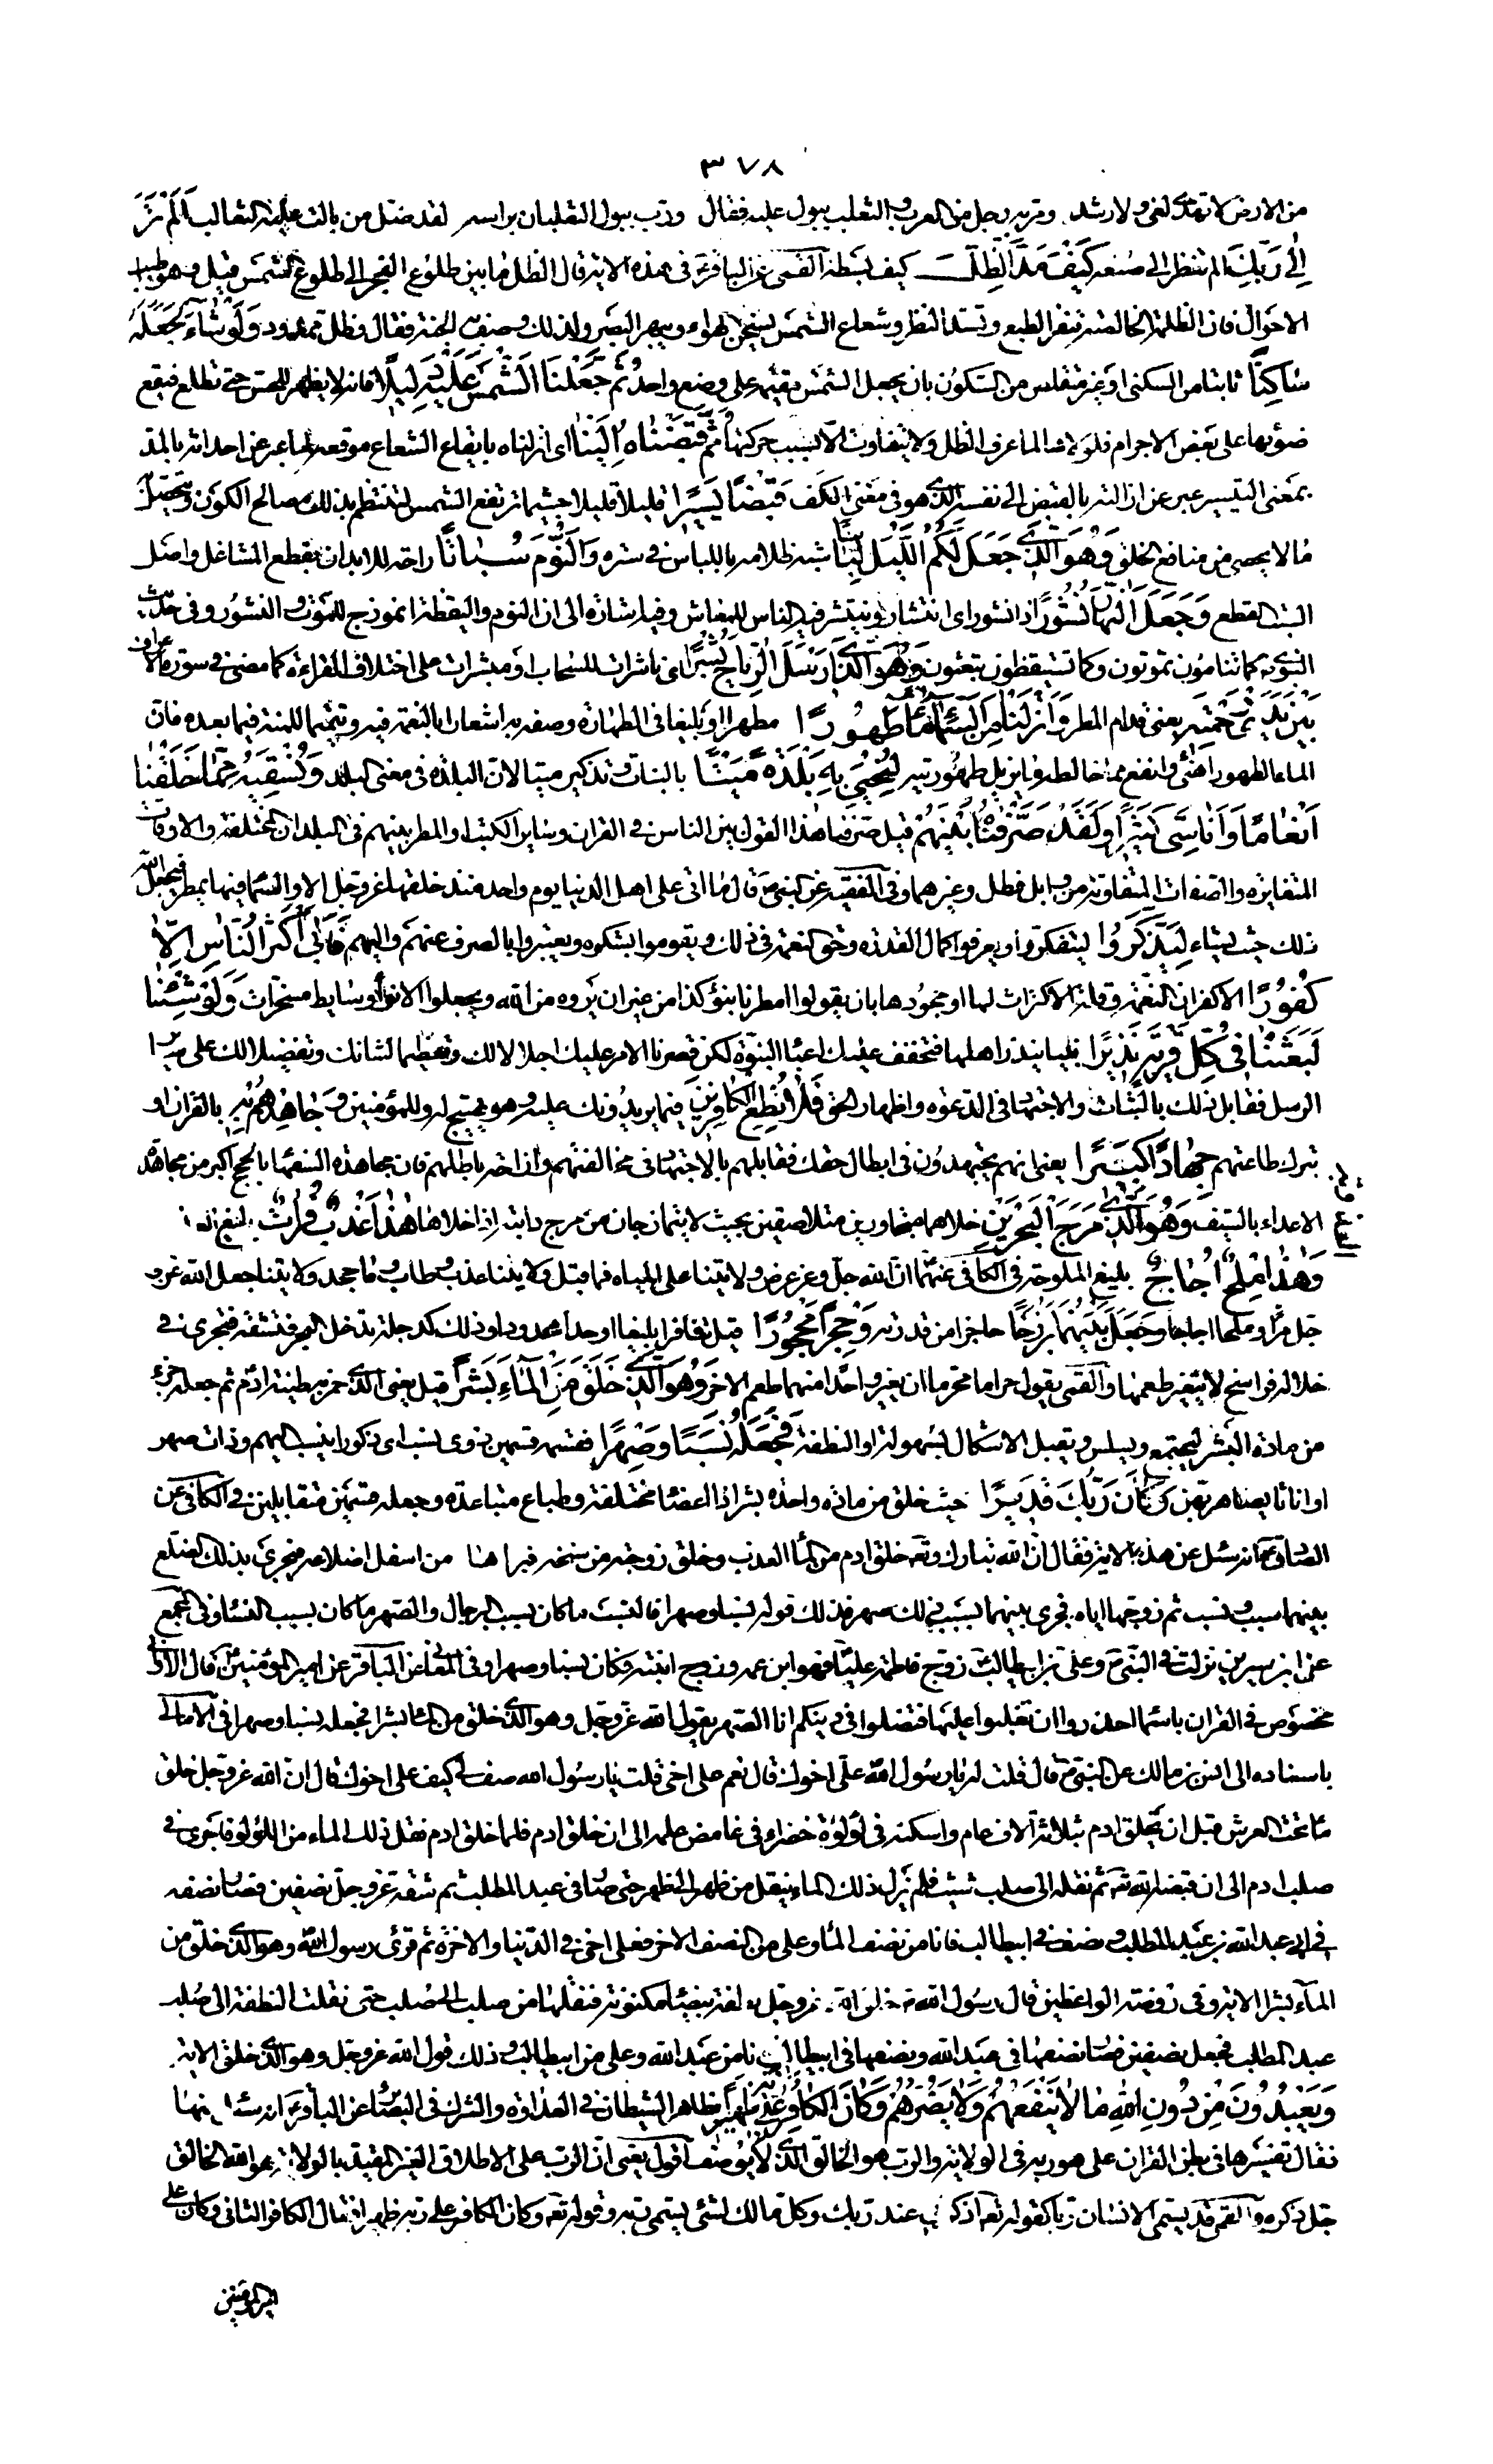 ٣٧٨
من الارض لا تهتدى لغى ولا رشد ومر به رجل من العرب والثعلب يبول عليه فقال ورب يبول الثعلبان براسه لقد ضل من بالت عليه الثعالب اَلَمْ تَرَ
اِلى رَبِّكَ الم تنظر الى صنعه كَيْفَ مَدَّ الظِّلَّ كيف بسطه القمى عن الباقر ع فى هذه الاية قال الظل ما بين طلوع الفجر الى طلوع الشمس قيل وهو اطيب
الاحوال فان الظلمة الخالصة تنفر الطبع وتسد النظر وشعاع الشمس يسخن الهواء ويبهر البصر ولذلك وصف به الجنة فقال وظل ممدود وَلَوْ شاءَ لَجَعَلَهُ
ساكِنًا ثابتا من السكنى او غير متقلص من السكون بان يجعل الشمس مقيمة على وضع واحد ثُمَّ جَعَلْنَا الشَّمْسَ عَلَيْهِ دَلِيلًا فانه لا يظهر للحس حتى تطلع فيقع
ضوئها على بعض الاجرام فلولاها لما عرف الظل ولا يتفاوت الا بسبب حركتها ثُمَّ قَبَضْناهُ اِلَيْنا اى ازلناه بايقاع الشعاع موقعه لما عبر عن احداثه بالمد
بمعنى التيسير عبر عن ازالته بالقبض الى نفسه الذى هو فى معنى الكف قَبْضًا يَسيرًا قليلا قليلا حيثما ترتفع الشمس لتنتظم بذلك مصالح الكون ويتحصل به
ما لا يحصى من منافع الخلق وَهُوَ الَّذى جَعَلَ لَكُمُ اللَّيْلَ لِباسًا شبه ظلامه باللباس فى ستره وَالنَّوْمَ سُباتًا راحة للابدان بقطع المشاغل واصل
السبت القطع وَجَعَلَ النَّهارَ نُشُورًا ذا نشور اى انتشار ينتشر فيه الناس للمعاش وفيه اشارة الى ان النوم واليقظة انموذج للموت والنشور وفى حديث
النبوى كما تنامون تموتون وكما تستيقظون تبعثون وَهُوَ الَّذى اَرْسَلَ الرِّياحَ بُشْرًا اى ناشرات للسحاب او مبشرات على اختلاف القراءة كما مضى فى سورة الاعراف
بَيْنَ يَدَىْ رَحْمَتِهِ يعنى قدام المطر وَاَنْزَلْنا مِنَ السَّماءِ ماءً طَهُورًا مطهرا او بليغا فى الطهارة وصفه به اشعارا بالنعمة فيه وتتميما للمنة فيما بعده فان
الماء الطهور اهنى وانفع مما خالطه ما يزيل طهوريته لِنُحْيِىَ بِهِ بَلْدَةً مَيْتًا بالنبات وتذكير ميتا لان البلدة فى معنى البلد وَنُسْقِيَهُ مِمّا خَلَقْنا
اَنْعامًا وَاَناسِىَّ كَثيرًا وَلَقَدْ صَرَّفْناهُ بَيْنَهُمْ قيل صرفنا هذا القول بين الناس فى القران وساير الكتب او المطر بينهم فى البلدان المختلفة والاوقات
المتغايرة والصفات المتفاوتة من وابل وطل وغيرهما وفى الفقيه عن النبى ص قال ما اتى على اهل الدنيا يوم واحد منذ خلقها عز وجل الا والسماء فيها تمطر فيجعل الله
ذلك حيث يشاء لِيَذَّكَّرُوا ليتفكروا ويعرفوا كمال القدرة وحق النعمة فى ذلك ويقوموا بشكره ويعتبروا بالصرف عنهم واليهم فَاَبى اَكْثَرُ النّاسِ اِلّا
كُفُورًا الا كفران النعمة وقلة الاكتراث لها او جحودها بان يقولوا امطرنا بنوء كذا من غير ان يروه من الله ويجعلوا الانواء وسايط مسخرات وَلَوْ شِئْنا
لَبَعَثْنا فى كُلِّ قَرْيَةٍ نَذيرًا نبيا ينذر اهلها فتخفف عليك اعباء النبوة لكن قصرنا الامر عليك اجلالا لك وتعظيما لشانك وتفضيلا لك على ساير
الرسل فقابل ذلك بالثبات والاجتهاد فى الدعوة واظهار الحق فَلا تُطِعِ الْكافِرينَ فيما يريدونك عليه وهو تهييج له وللمؤمنين وَجاهِدْهُمْ بِهِ بالقران او
بترك طاعتهم جِهادًا كَبيرًا يعنى انهم يجتهدون فى ابطال حقك فقابلهم بالاجتهاد فى مخالفتهم وازاحة باطلهم فان مجاهدة السفهاء بالحجج اكبر من مجاهدة
الاعداء بالسيف وَهُوَ الَّذى مَرَجَ الْبَحْرَيْنِ خلاهما متجاورين متلاصقين بحيث لا يتمازجان من مرج دابته اذا خلاها هذا عَذْبٌ فُراتٌ
وَهذا مِلْحٌ اُجاجٌ بليغ الملوحة فى الكافى عنهما ان الله جل وعز عرض ولايتنا على المياه فما قبل ولايتنا عذب وطاب وما جحد ولايتنا جعل الله عز و
جل مرا وملحا اجاجا وَجَعَلَ بَيْنَهُما بَرْزَخًا حاجزا من قدرته وَحِجْرًا مَحْجُورًا قيل تنافرا بليغا او حدا محدودا وذلك كدجلة تدخل البحر فتشقه فتجرى فى
خلاله فراسخ لا يتغير طعمها والقمى يقول حراما محرما ان يغير واحد منهما طعم الاخر وَهُوَ الَّذى خَلَقَ مِنَ الْماءِ بَشَرًا قيل يعنى الذى خمر به طينة ادم ثم جعله جزء
من مادة البشر ليجتمع ويسلس ويقبل الاشكال بسهولة او النطفة فَجَعَلَهُ نَسَبًا وَصِهْرًا فقسمه قسمين ذوى نسب اى ذكورا ينسب اليهم وذات صهر
او اناثا يصاهر بهن وَكانَ رَبُّكَ قَديرًا حيث خلق من مادة واحدة بشرا ذا اعضاء مختلفة وطباع متباعدة وجعله قسمين متقابلين فى الكافى عن
الصادق ع انه سئل عن هذه الاية فقال ان الله تبارك وتعالى خلق ادم من الماء العذب وخلق زوجته من سنخه فبراها من اسفل اضلاعه فجرى بذلك الضلع
بينهما سبب ونسب ثم زوجها اياه فجرى بينهما بسبب ذلك صهر فذلك قوله نسبا وصهرا فالنسب ما كان بسبب الرجال والصهر ما كان بسبب النساء وفى المجمع
عن ابن سيرين نزلت فى النبى ص وعلى بن ابى طالب ع زوج فاطمة عليا فهو ابن عمه وزوج ابنته فكان نسبا وصهرا وفى المعانى عن الباقر عن امير المؤمنين ع قال الا وانى
مخصوص فى القران باسماء احذروا ان تغلبوا عليها فتضلوا فى دينكم انا الصهر يقول الله عز وجل وهو الذى خلق من الماء بشرا فجعله نسبا وصهرا وفى الامالى
باسناده الى انس بن مالك عن النبى ص قال قلت له يا رسول الله على اخوك قال نعم على اخى قلت يا رسول الله صف لى كيف على اخوك قال ان الله عز وجل خلق
ماء تحت العرش قبل ان يخلق ادم بثلاثة آلاف عام واسكنه فى لؤلؤة خضراء فى غامض علمه الى ان خلق ادم فلما خلق ادم نقل ذلك الماء من اللؤلؤة فاجرى فى
صلب ادم الى ان قبضه الله تع ثم نقله الى صلب شيث فلم يزل ذلك الماء ينتقل من ظهر الى ظهر حتى صار فى عبد المطلب ثم شقه عز وجل نصفين فصار نصفه
فى ابى عبد الله بن عبد المطلب ونصف فى ابيطالب فانا من نصف الماء وعلى من النصف الاخر فعلى اخى فى الدنيا والاخرة ثم قرئ رسول الله وهو الذى خلق من
الماء بشرا الاية وفى روضة الواعظين قال رسول الله ص خلق الله عز وجل نطفة بيضاء مكنونة فنقلها من صلب الى صلب حتى نقلت النطفة الى صلب
عبد المطلب فجعل نصفين فصار نصفها فى عبد الله ونصفها فى ابيطالب فانا من عبد الله وعلى من ابيطالب وذلك قول الله عز وجل وهو الذى خلق الاية
وَيَعْبُدُونَ مِنْ دُونِ اللهِ ما لا يَنْفَعُهُمْ وَلا يَضُرُّهُمْ وَكانَ الْكافِرُ عَلى رَبِّهِ ظَهيرًا يظاهر الشيطان فى العداوة والشرك فى البصائر عن الباقر ع انه سئل عنها
فقال تفسيرها فى بطن القران على هو ربه فى الولاية والرب هو الخالق الذى لا يوصف اقول يعنى ان الرب على الاطلاق الغير المقيد بالولاية هو الله الخالق
جل ذكره والقمى قد يسمى الانسان ربا كقوله تع اذكرنى عند ربك وكل مالك لشىء يسمى ربه وقوله تع وكان الكافر على ربه ظهيرا فقال الكافر الثانى وكان على
امير المؤمنين